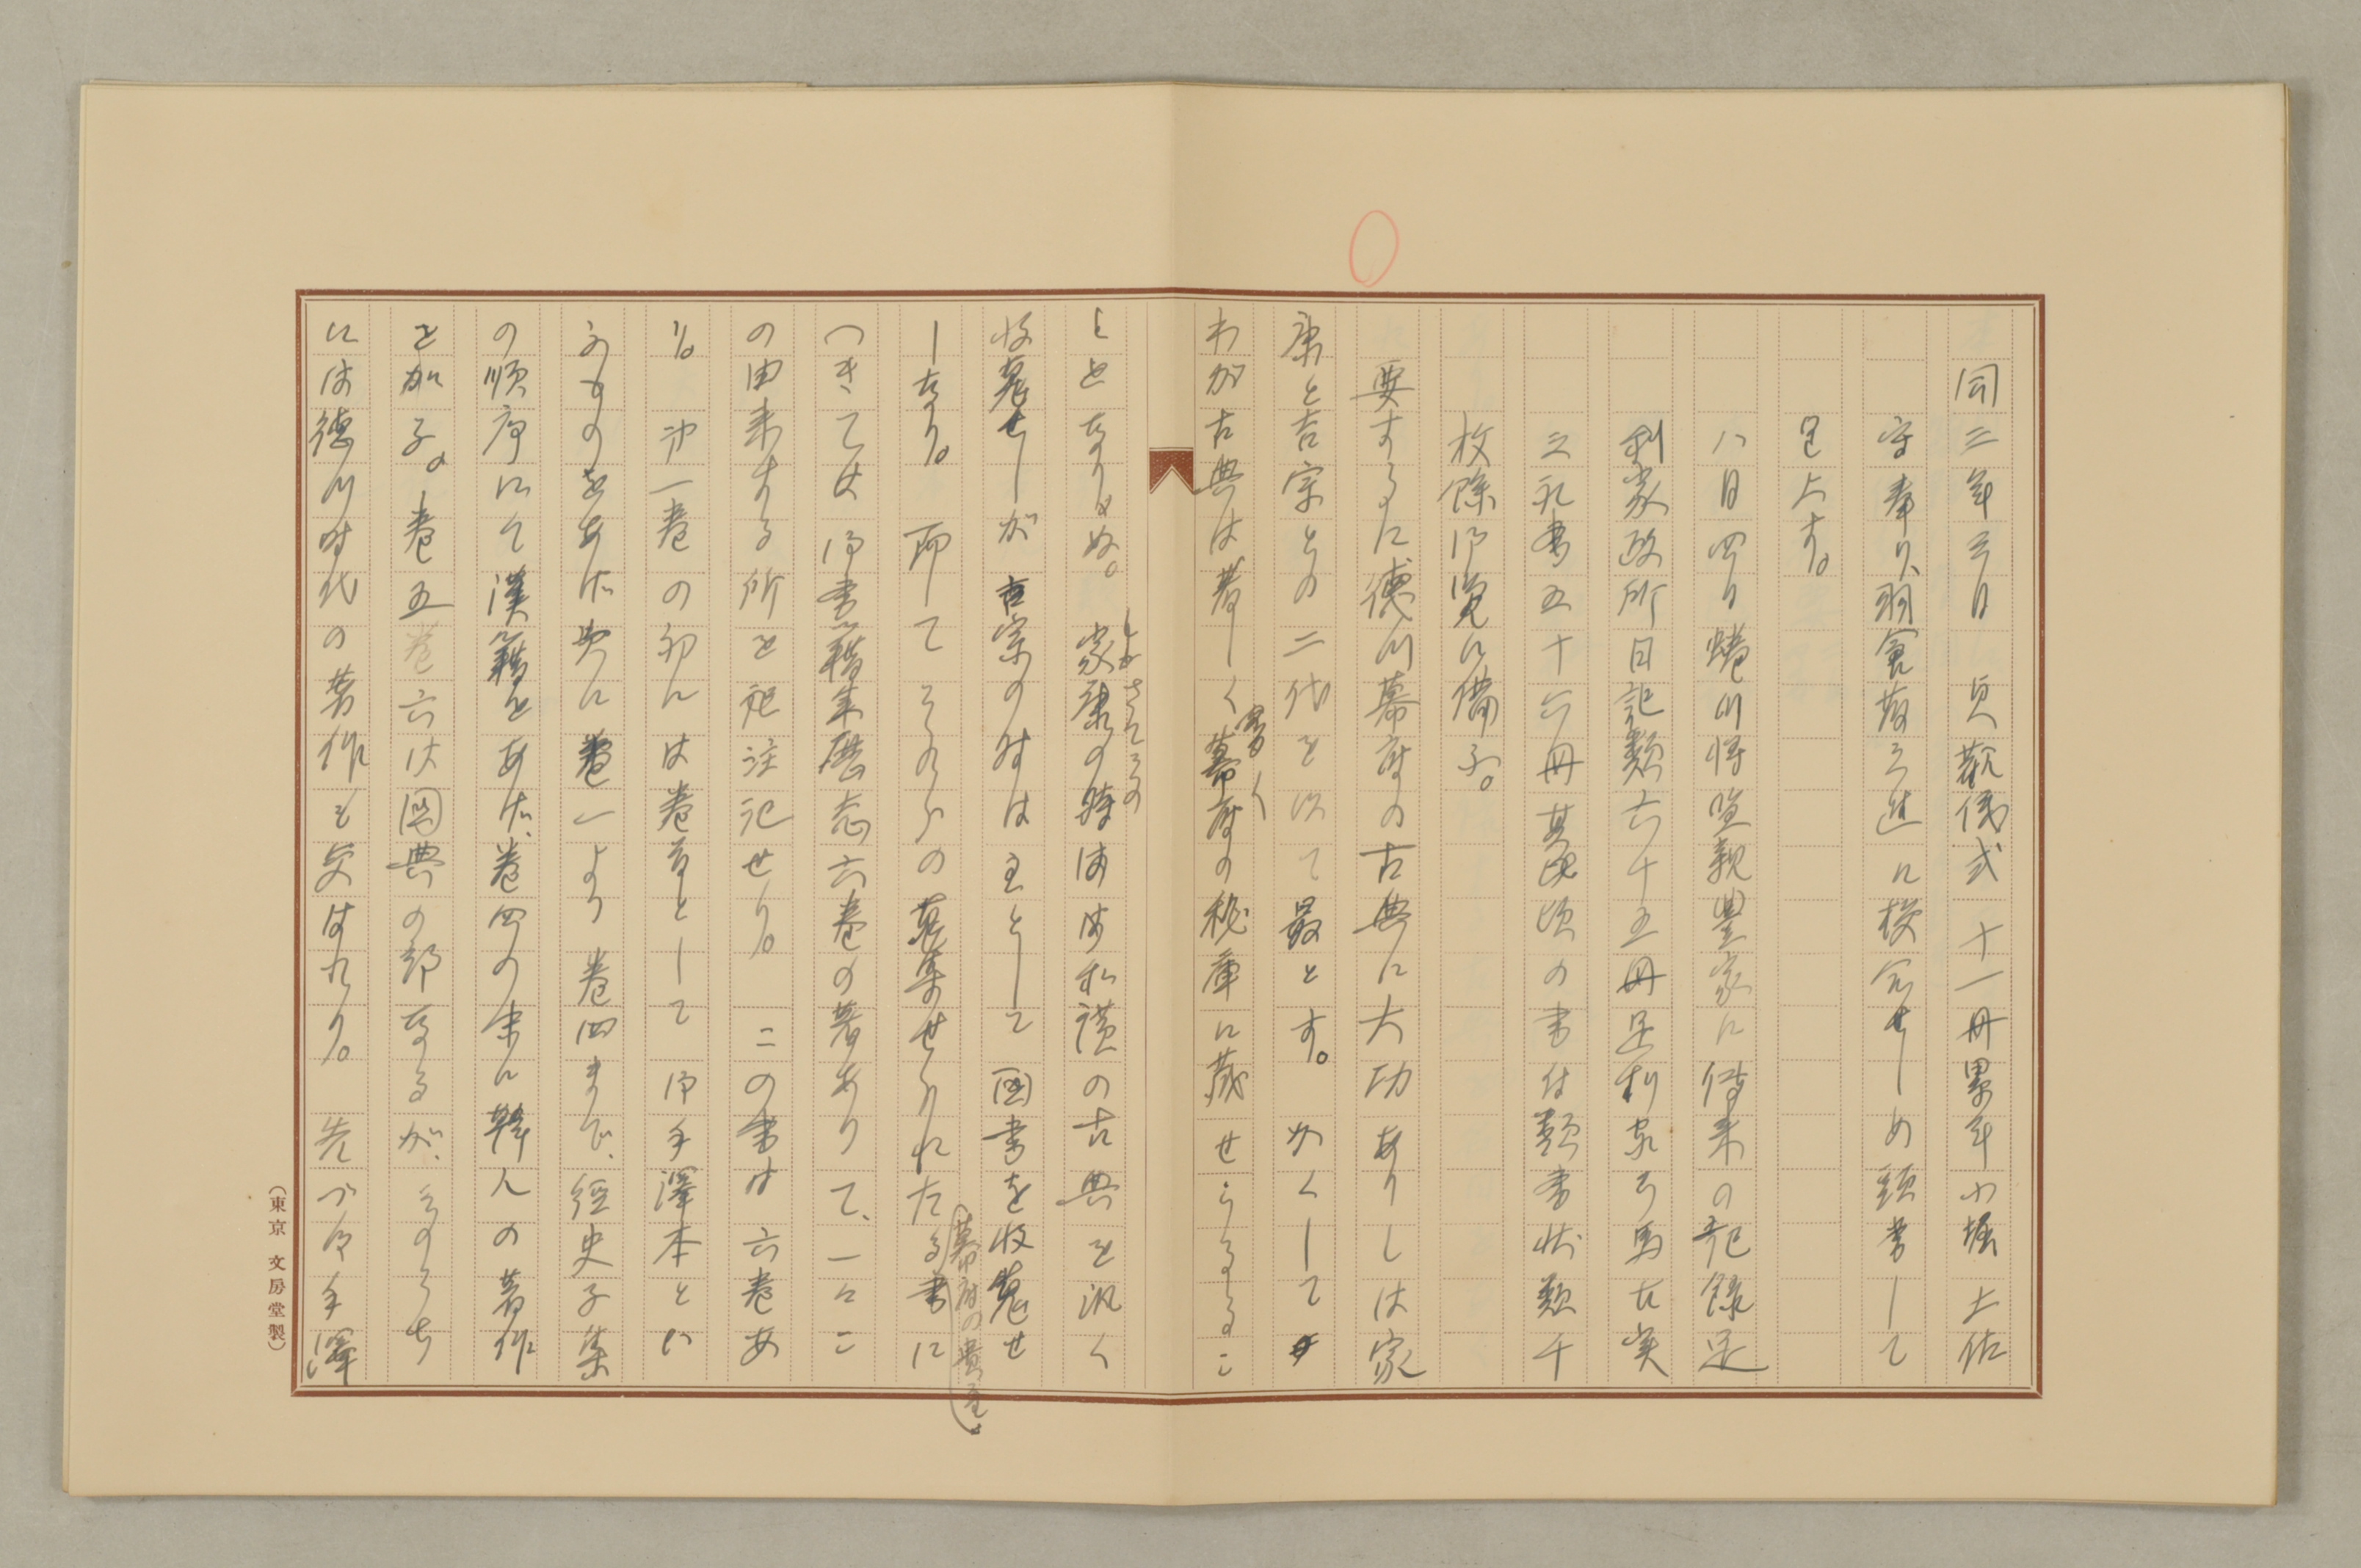 同三年三月 貞觀儀式 十一冊異年小堀土佐
守奉り、羽倉蔵之進に校合せしめ頭書して
呈上す。
八月四日蜷川将監親豊家に傳来の記錄足
利家政所日記類六十五冊足利家弓馬古実
之礼書五十六冊其比頃の書付類書状類千
枚餘御覧に備ふ。
要するに德川幕府の古典に大功ありしは家
康と吉宗との二代を以て最とす。かくして
わが古典は著しく多く幕府の秘庫に蔵せらるるこ
ととなりぬ。家康の時は私讀の古典を汎く
しかさてその
收蒐せしが吉宗の時は主として国書を收蒐せ
しなり。而してそれらの蒐集せられたる書に
(幕府の貴重)
つきては御書籍来歴志六巻の著ありて、一々こ
の由来する所を記注記せり。この書は六巻あ
り。第一巻の初には巻首として御手澤本とい
ふものをあげ次に巻一より巻四まで、經史子集
の順序にて漢籍をあげ、巻四の末に韓人の著作
を加ふ。巻五巻六は国典の部なるが、そのうち
には德川時代の著作も交はれり。先づ御手澤
(東京 文房堂製)